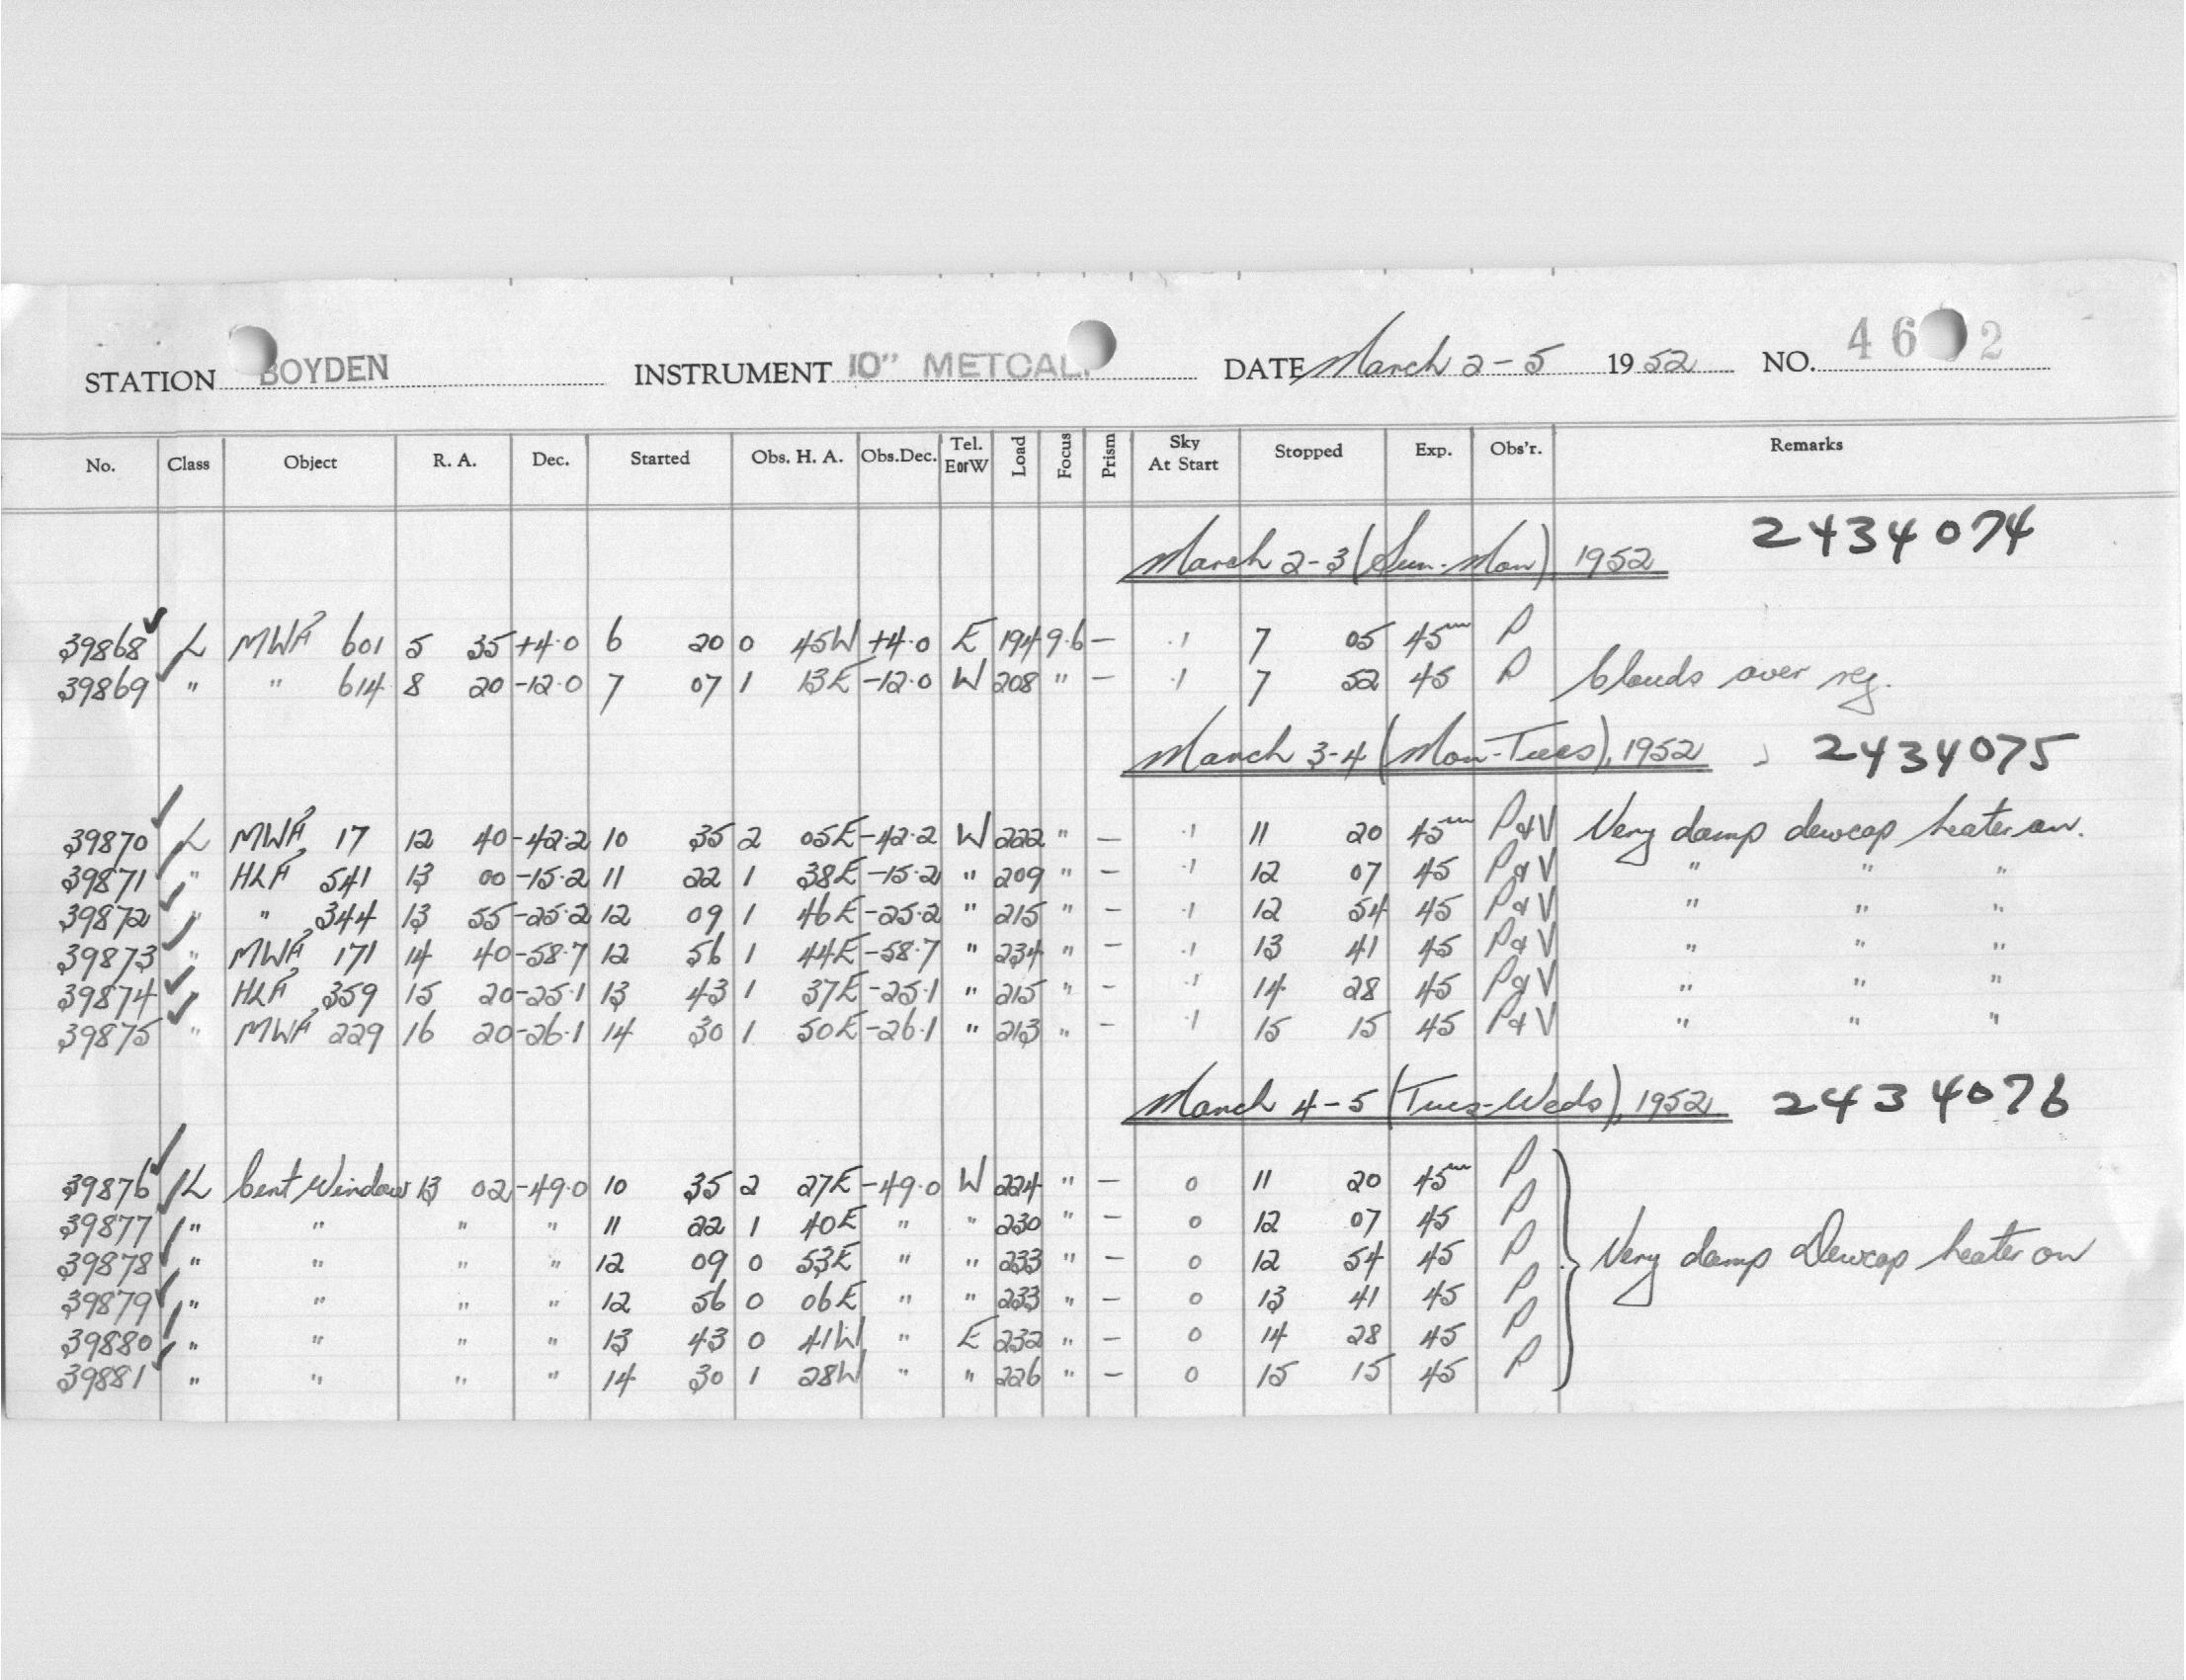 STATION BOYDEN INSTRUMENT 10" METCAL DATE March 2-5 1952 NO. 46 2
No. Class Object R. A. Dec. Started Obs. H. A. Obs.Dec. Tel. EorW Load Focus Prism Sky At Start Stopped Exp. Obs'r. Remarks
March 2-3 (Sun-Mon) 1952 2434074
39868 L MWF 601 5 35 +4.0 6 20 0 45W +4.0 E 194 9.6 — .1 7 05 45m P
39869 " " 614 8 20 -12.0 7 07 1 13E -12.0 W 208 " — .1 7 52 45 P Clouds over reg.
March 3-4 (Mon-Tues), 1952 2434075
39870 L MWF 17 12 40 -42.2 10 35 2 05E -42.2 W 222 " — .1 11 20 45m P&V Very damp dewcap heater on.
39871 " HLF 541 13 00 -15.2 11 22 1 38E -15.2 " 209 " — .1 12 07 45 P&V " " "
39872 " " 344 13 55 -25.2 12 09 1 46E -25.2 " 215 " — .1 12 54 45 P&V " " "
39873 " MWF 171 14 40 -58.7 12 56 1 44E -58.7 " 234 " — .1 13 41 45 P&V " " "
39874 " HLF 359 15 20 -25.1 13 43 1 37E -25.1 " 215 " — .1 14 28 45 P&V " " "
39875 " MWF 229 16 20 -26.1 14 30 1 50E -26.1 " 213 " — .1 15 15 45 P&V " " "
March 4-5 (Tues-Weds), 1952 2434076
39876 L Cent Window 13 02 -49.0 10 35 2 27E -49.0 W 224 " — 0 11 20 45m P
39877 " " " " 11 22 1 40E " " 230 " — 0 12 07 45 P
39878 " " " " 12 09 0 53E " " 233 " — 0 12 54 45 P Very damp Dewcap heater on
39879 " " " " 12 56 0 06E " " 233 " — 0 13 41 45 P
39880 " " " " 13 43 0 41W " E 232 " — 0 14 28 45 P
39881 " " " " 14 30 1 28W " " 226 " — 0 15 15 45 P